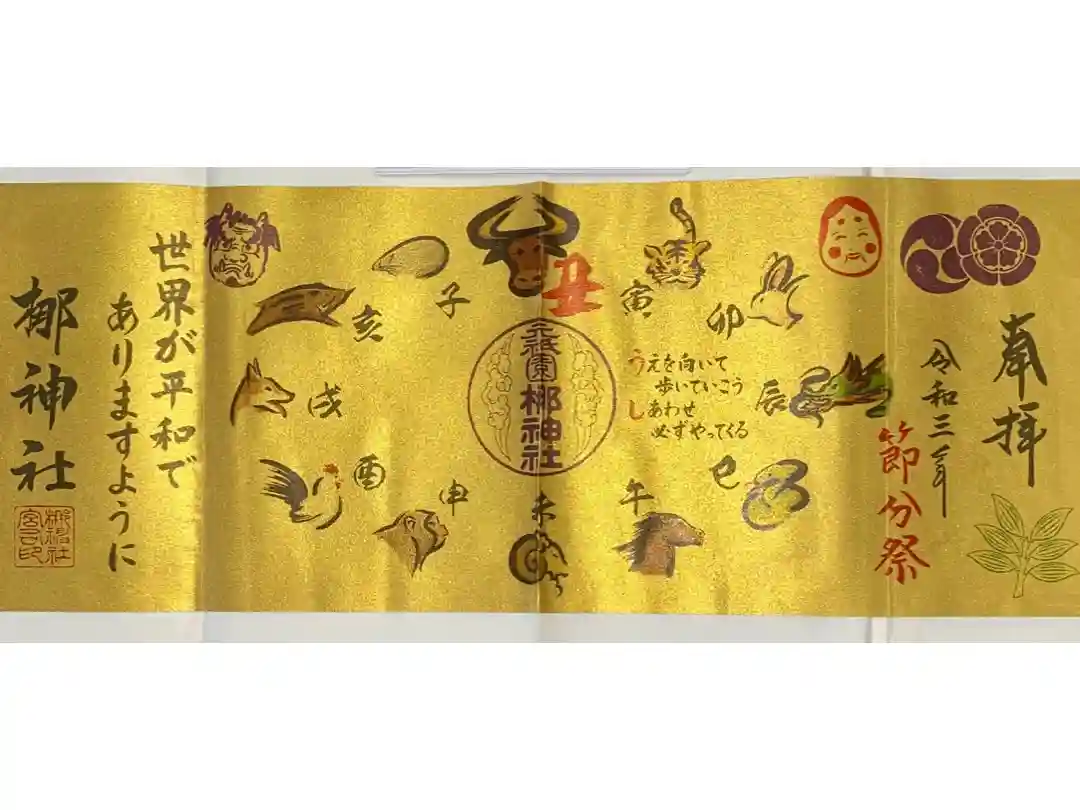 奉拝
令和三年
節分祭
子
丑
寅
卯
辰
巳
午
未
申
酉
戌
亥
元祇園
梛神社
うえを向いて
歩いていこう
しあわせ
必ずやってくる
世界が平和で
ありますように
梛神社
梛神社
宮司印